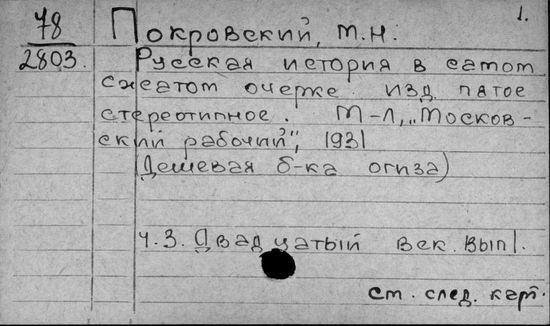 1.
78 Покровский, М.Н.
2803. Русская история в самом
сжатом очерке. изд. пятое
стереотипное. М-Л, „Москов-
ский рабочий", 1931
(Дешевая б-ка огиза)
ч.3. Двадцатый век. вып1.
см. след. карт.